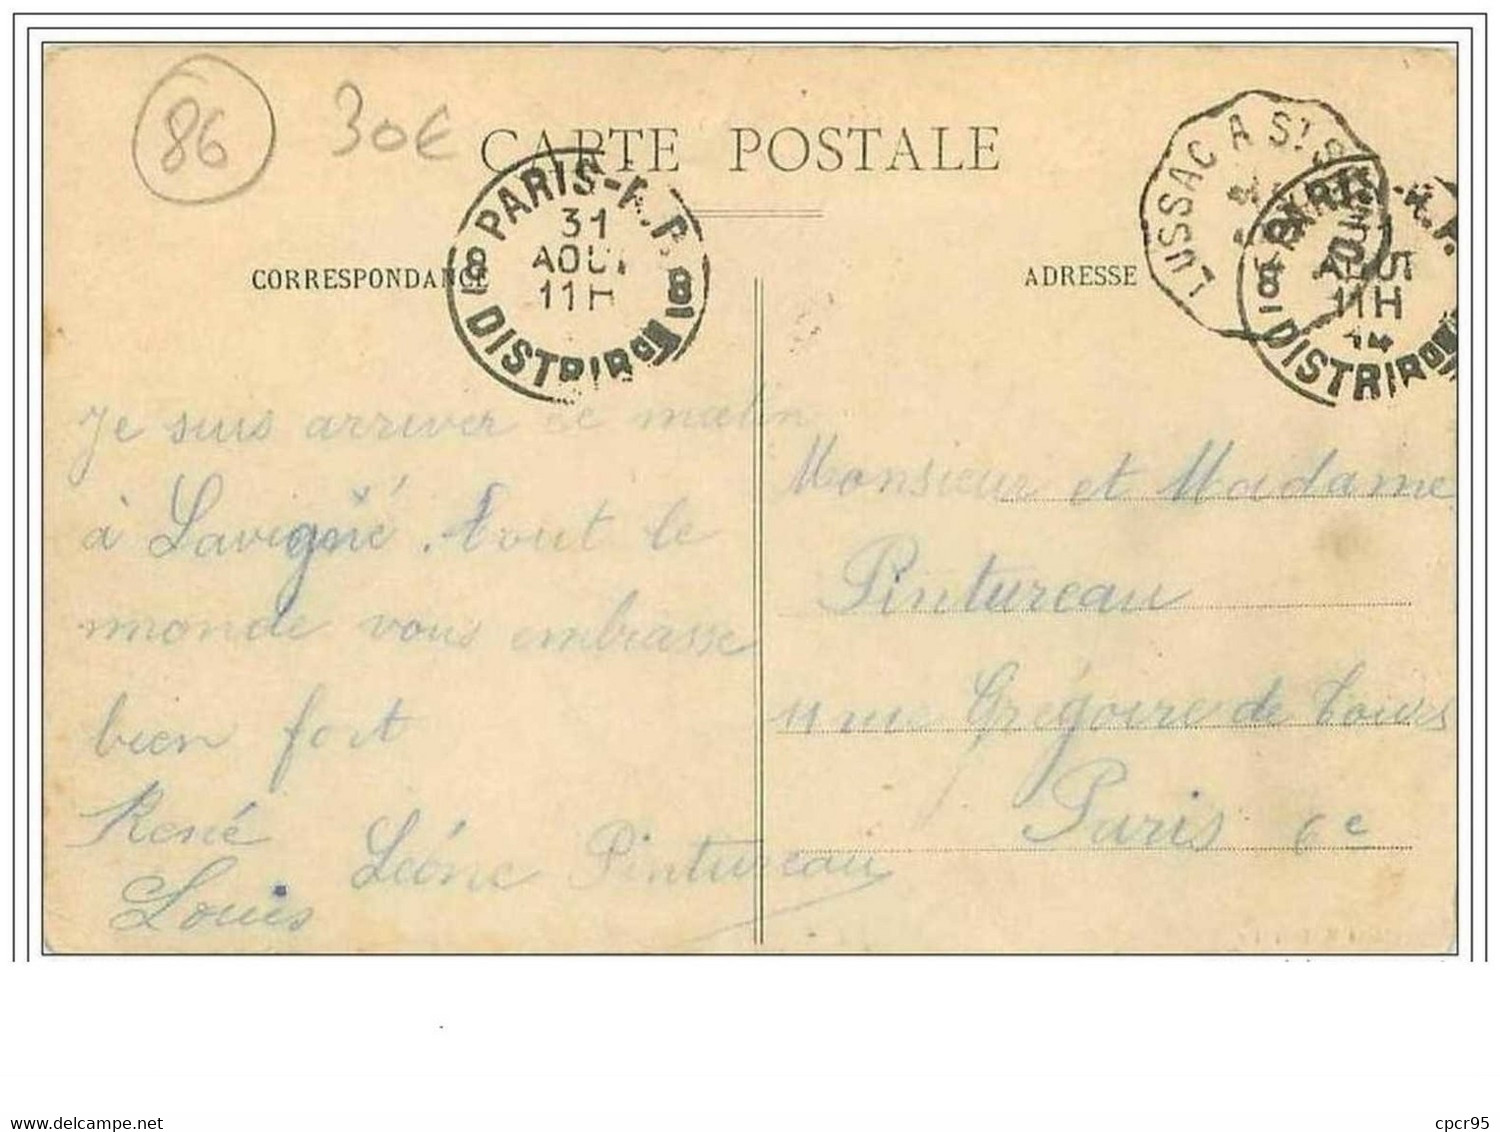 86
30€
CARTE POSTALE
CORRESPONDANCE
ADRESSE
PARIS-R.P.
31
AOUT
11H
8
8
DISTRIBON
LUSSAC A ST S
PARIS-R.P.
31
AOUT
11H
14
8
DISTRIBON
Je suis arriver ce matin
à Lavigné. Tout le
monde vous embrasse
bien fort
René
Léone Pintureau
Louis
Monsieur et Madame
Pintureau
11 rue Grégoire de Tours
Paris 6e
www.delcampe.net
cpcr95